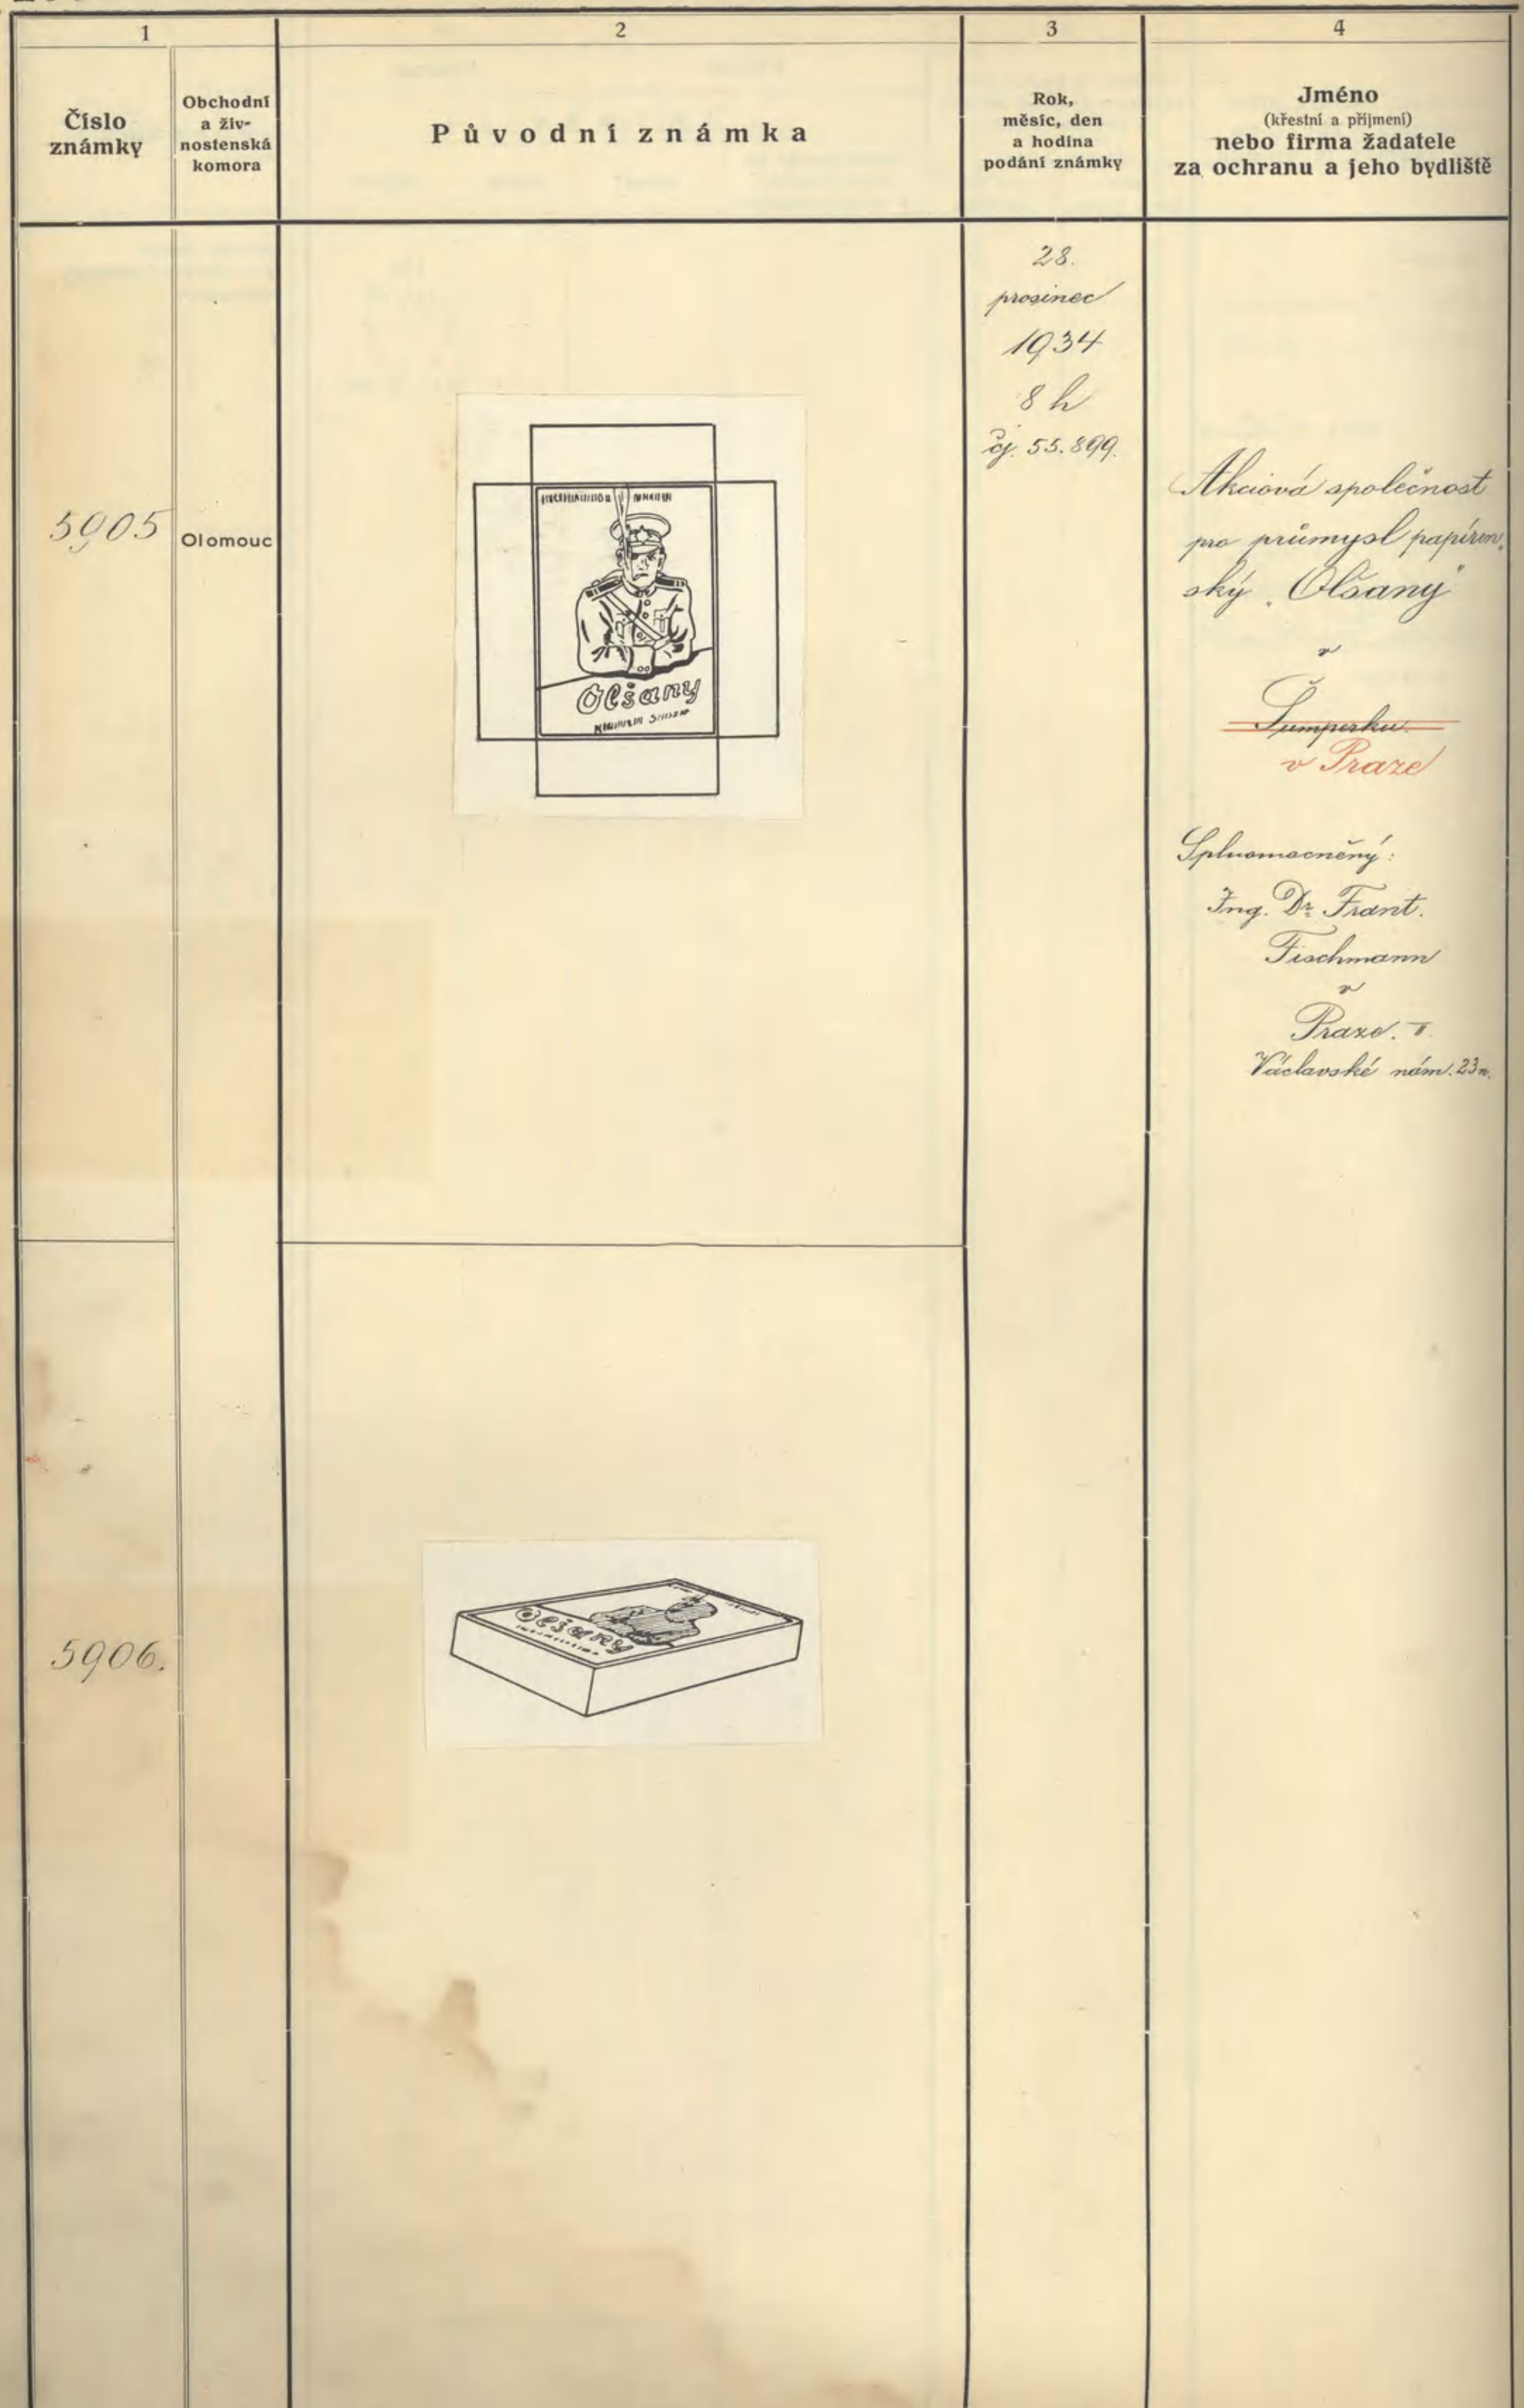 1
2
3
4
Číslo
známky
Obchodní
a živ-
nostenská
komora
Původní známka
Rok,
měsíc, den
a hodina
podání známky
Jméno
(křestní a příjmení)
nebo firma žadatele
za ochranu a jeho bydliště
5905
Olomouc
Olšany
28.
prosinec
1934
8 h
čj. 55.899.
Akciová společnost
pro průmysl papíren-
ský „Olšany"
v
Šumperku
v Praze
Splnomocněný:
Ing. Dr. Frant.
Fischmann
v
Praze. II.
Václavské nám. 23
5906.
Olšany